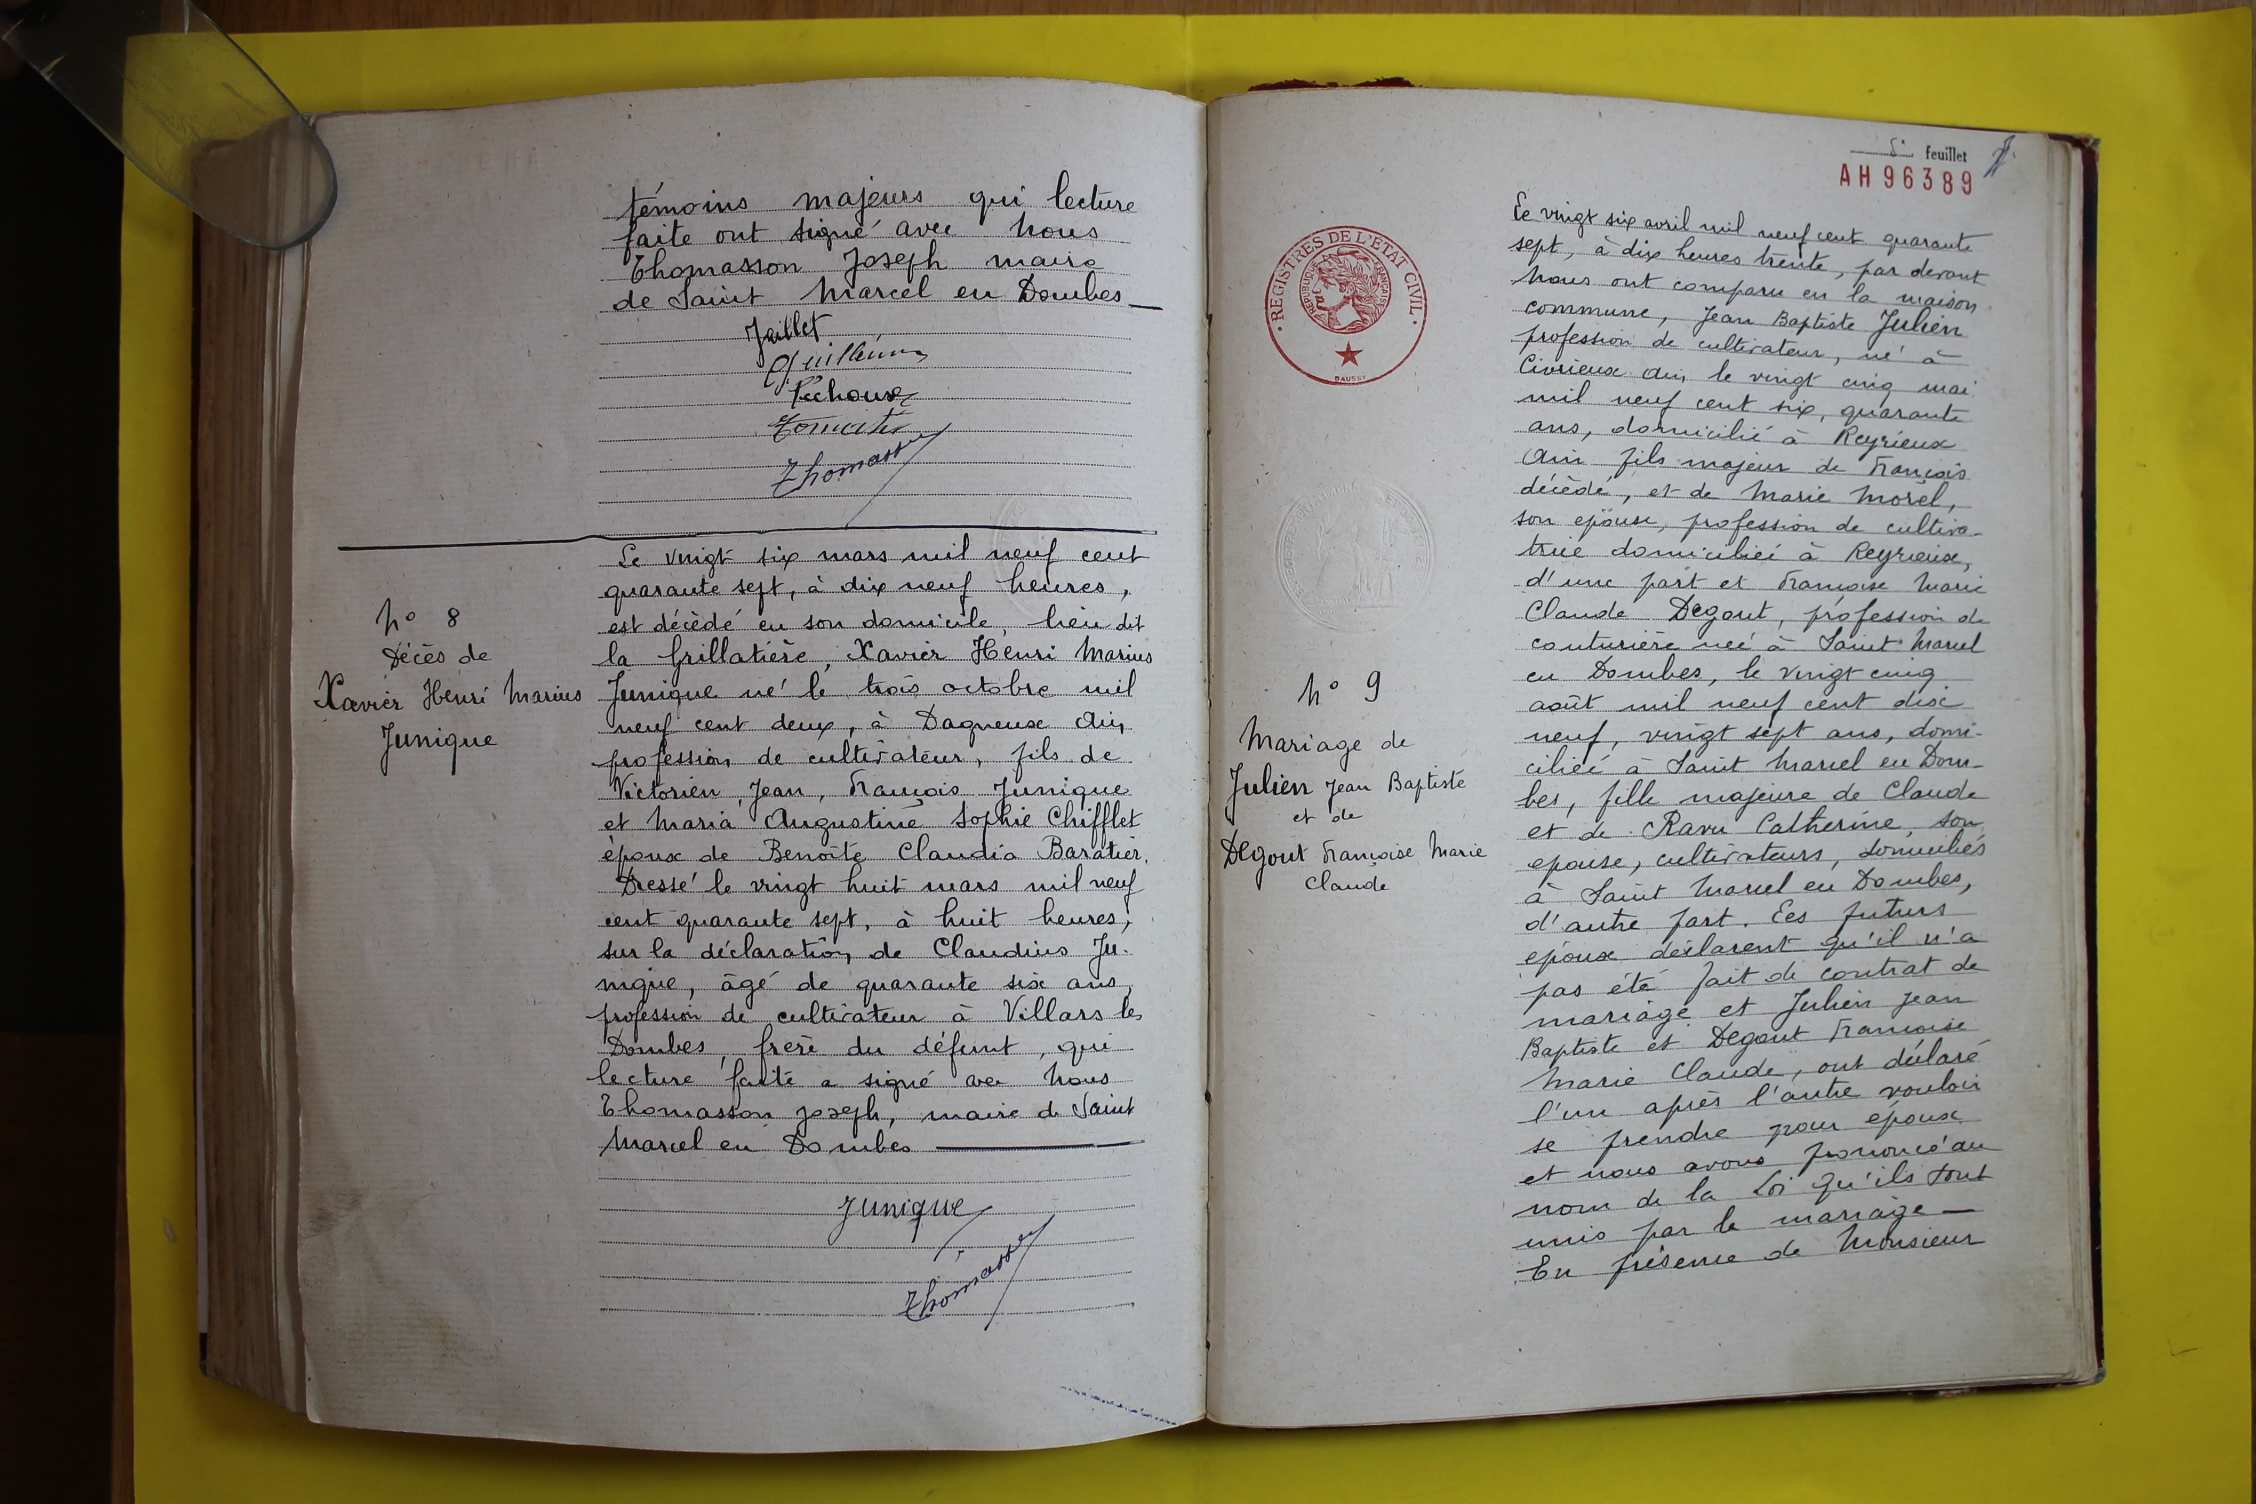 témoins majeurs qui lecture
faite ont signé avec nous
Thomasson Joseph maire
de Saint Marcel en Dombes
Jaillet
Péchoux
Thomasson
Le vingt six mars mil neuf cent
quarante sept, à dix neuf heures,
est décédé en son domicile, lieu dit
la Grillatière, Xavier Henri Marius
Junique né le trois octobre mil
neuf cent deux, à Dagneux Ain,
profession de cultivateur, fils de
Victorien, Jean, François Junique
et Maria Augustine Sophie Chifflet
époux de Benoîte Claudia Baratier.
Dressé le vingt huit mars mil neuf
cent quarante sept, à huit heures,
sur la déclaration de Claudius Ju-
nique, âgé de quarante six ans,
profession de cultivateur à Villars les
Dombes, frère du défunt, qui
lecture faite a signé avec nous
Thomasson Joseph, maire de Saint
Marcel en Dombes
Junique
Thomasson
N° 8
Décès de
Xavier Henri Marius
Junique
5e feuillet
AH 96389
REGISTRES DE L'ETAT CIVIL
REPUBLIQUE FRANÇAISE
DAUSSY
N° 9
Mariage de
Julien Jean Baptiste
et de
Degout Françoise Marie
Claude
Le vingt six avril mil neuf cent quarante
sept, à dix heures trente, par devant
nous ont comparu en la maison
commune, Jean Baptiste Julien
profession de cultivateur, né à
Civrieux Ain, le vingt cinq mai
mil neuf cent six, quarante
ans, domicilié à Reyrieux
Ain fils majeur de François
décédé, et de Marie Morel,
son épouse, profession de cultiva-
trice domiciliée à Reyrieux,
d'une part et Françoise Marie
Claude Degout, profession de
couturière née à Saint Marcel
en Dombes, le vingt cinq
août mil neuf cent dix
neuf, vingt sept ans, domi-
ciliée à Saint Marcel en Dom-
bes, fille majeure de Claude
et de Ravu Catherine, son
epouse, cultivateurs, domiciliés
à Saint Marcel en Dombes,
d'autre part. Les futurs
époux déclarent qu'il n'a
pas été fait de contrat de
mariage et Julien Jean
Baptiste et Degout Françoise
Marie Claude, ont déclaré
l'un après l'autre vouloir
se prendre pour époux
et nous avons prononcé au
nom de la Loi qu'ils sont
unis par le mariage
En présence de Monsieur